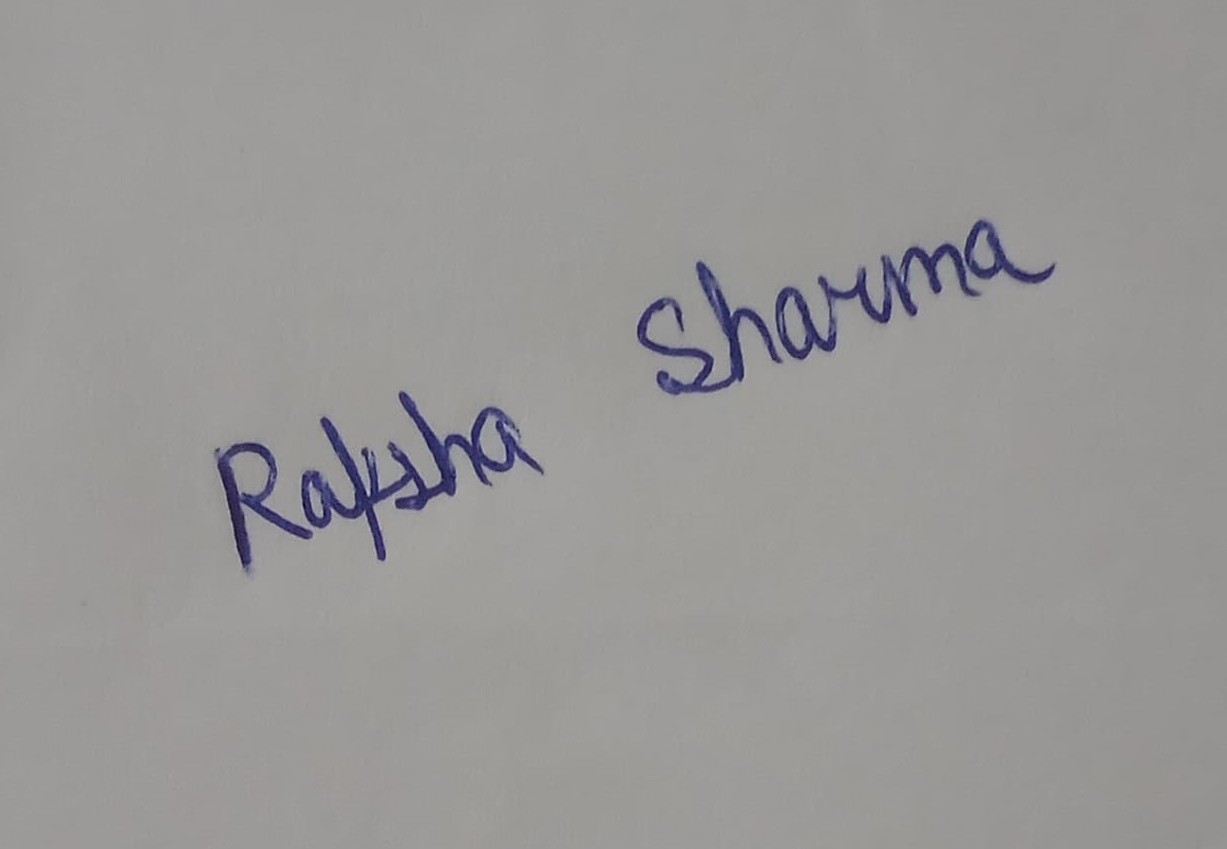 Raksha Sharma